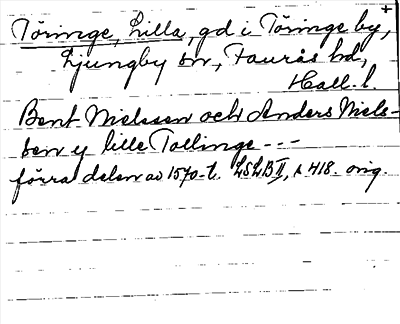 Töringe, Lilla, gd i Töringe by,
Ljungby sn, Faurås hd,
Hall. l.
Bent Nielssen och Anders Niels-
sen y lille Tollinge - - -
förra delen av 1570-t. LSLB II, s 418. orig.